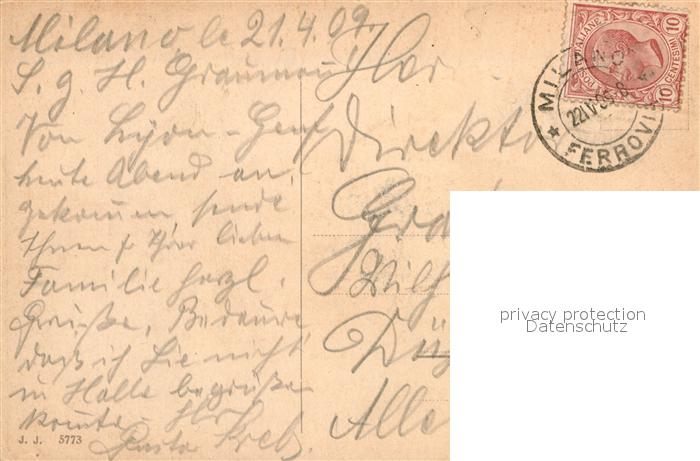 Milano, le 21.4.09.
S. g. H. Graumann
Von Lyon - Genf
heute Abend an,
gekommen, sende
Ihnen & Ihrer lieben
Familie herzl.
Grüße, Bedaure
daß ich Sie nicht
in Halle begrüßen
konnte.
Gustav Krebs.
J. J. 5773
Herr
Direkto
Gra
Wilh
Alle
POSTE ITALIANE
CENTESIMI 10
10
MILANO
22.IV.09-8
* FERROVIA
privacy protection
Datenschutz